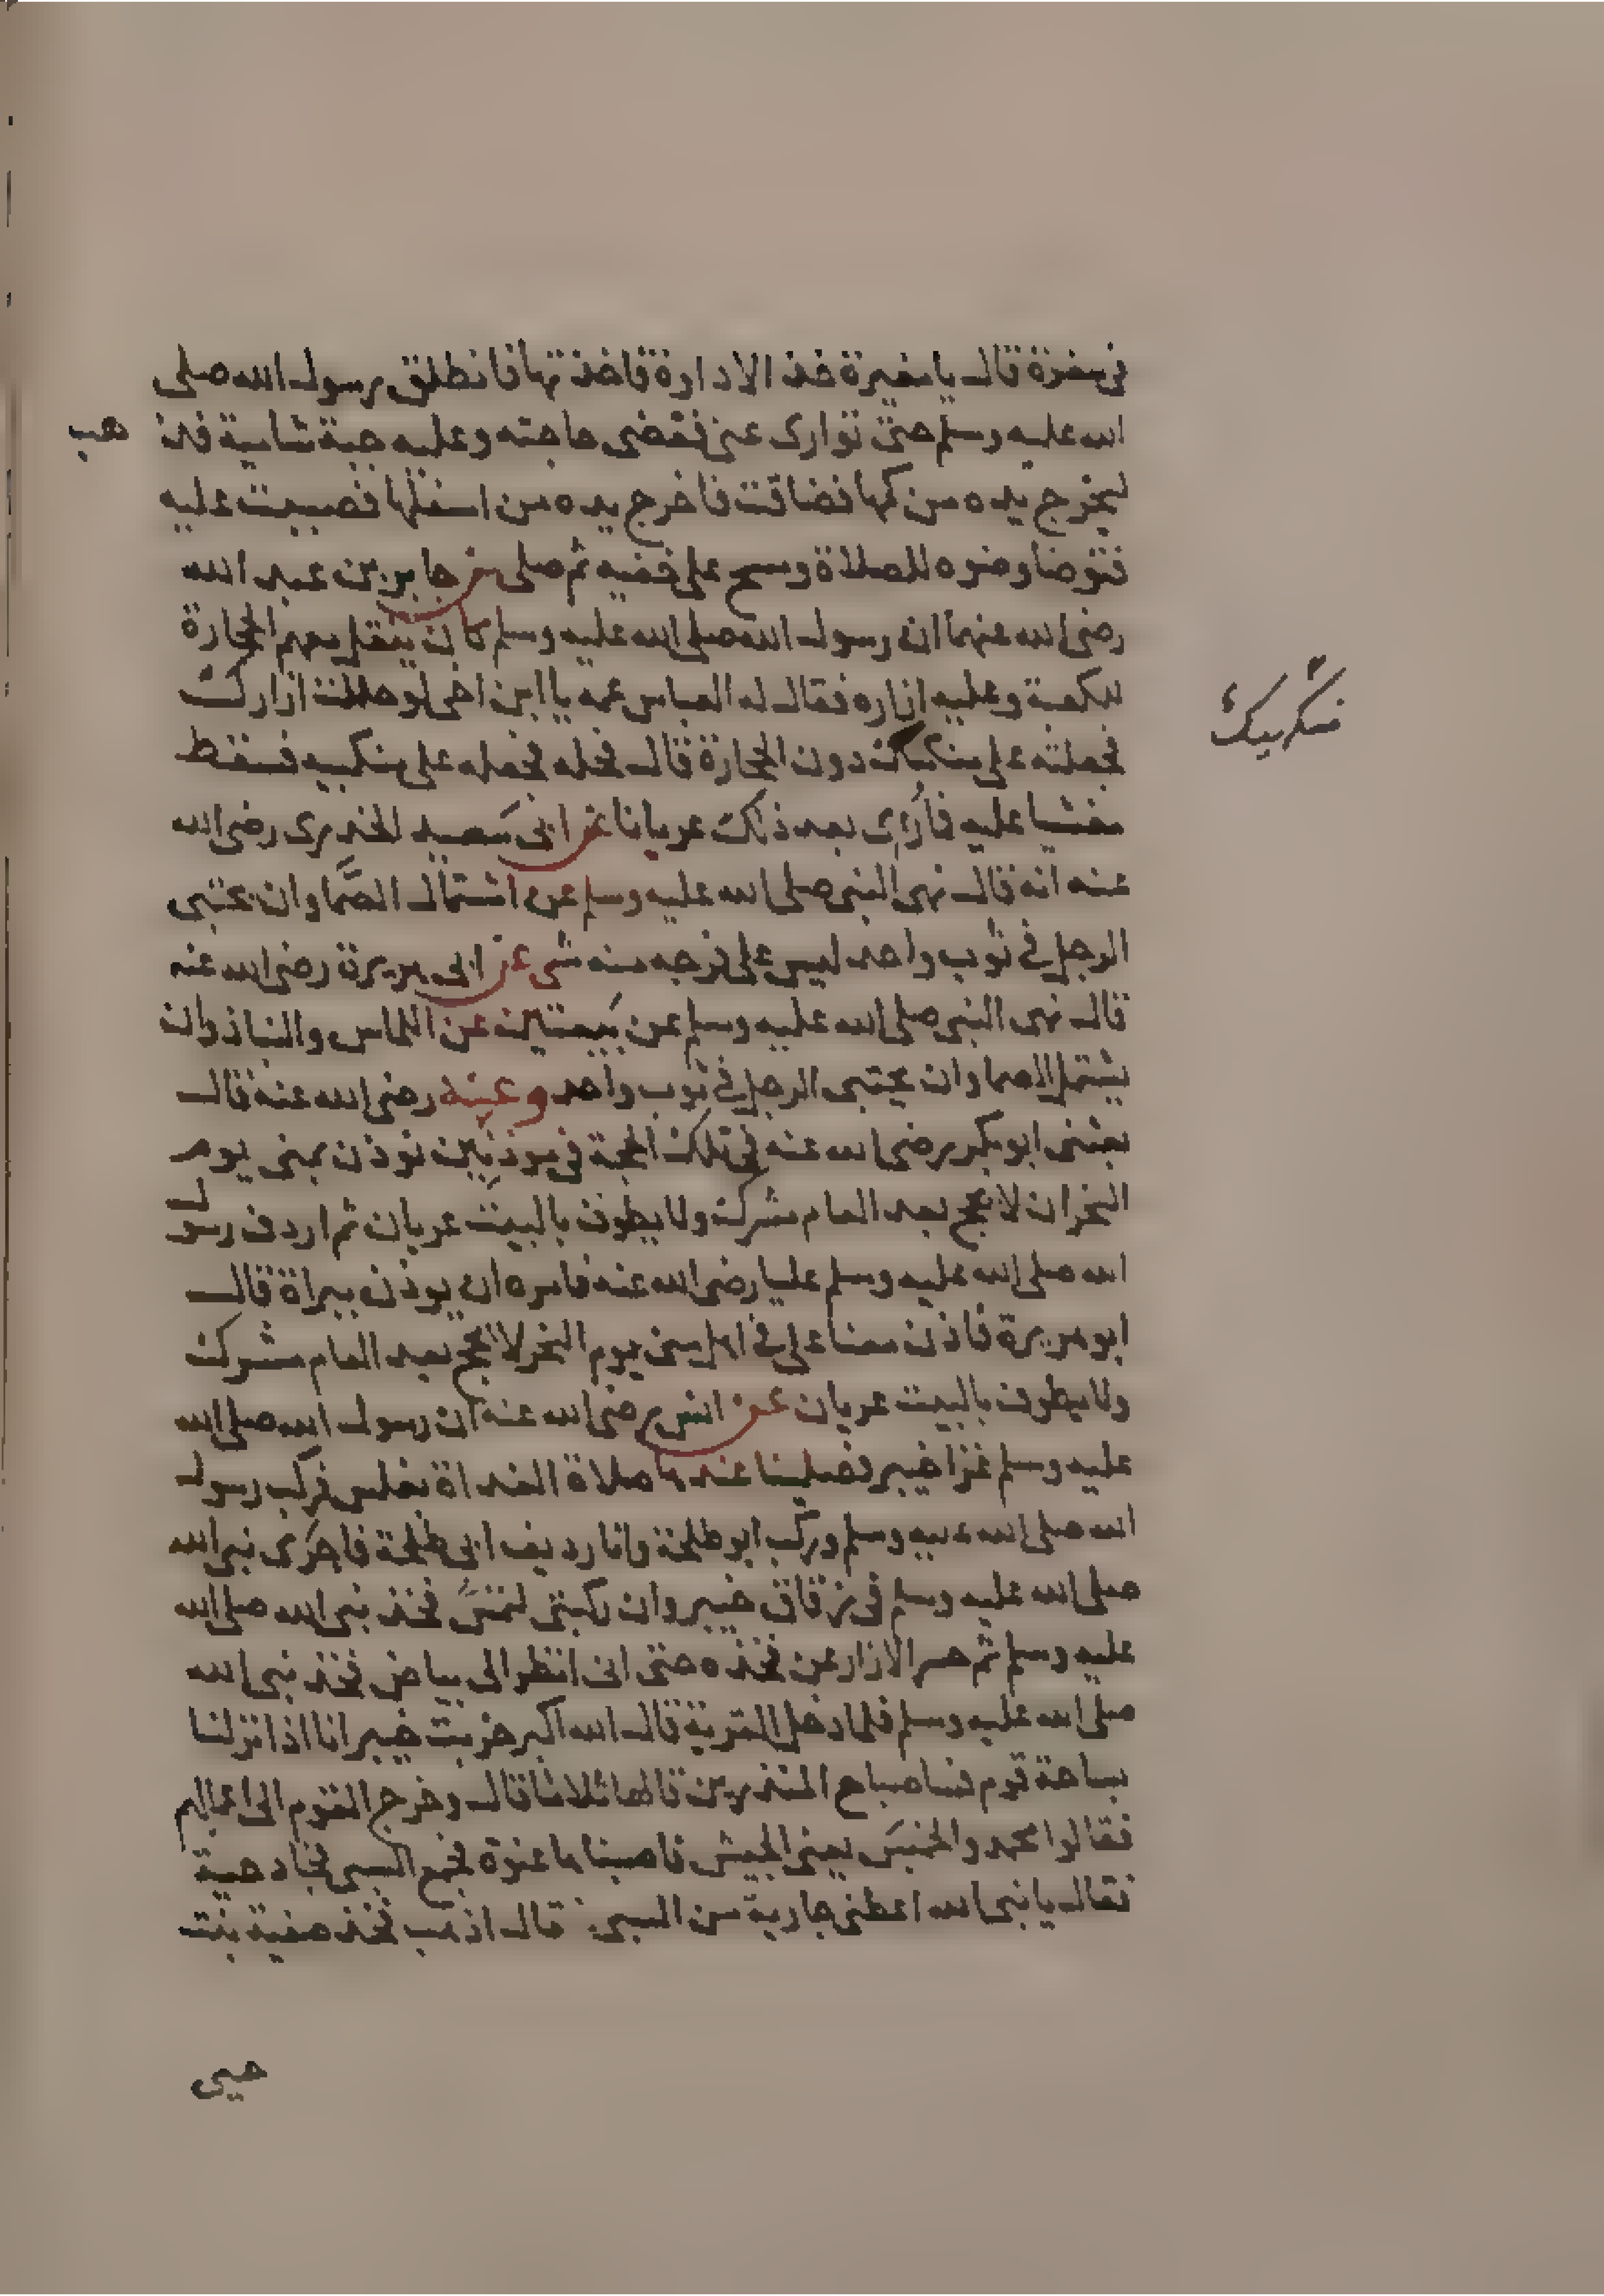 فى سفرة قال يا مغيرة خذ الاداوة فاخذتها فانطلق رسول الله صلى
الله عليه وسلم حتى توارى عنى فقضى حاجته وعليه جبة شامية فذ
هب
ليخرج يده من كمها فضاقت فاخرج يده من اسفلها فصببت عليه
فتوضا وضوه للصلاة ومسح على خفيه ثم صلى عن جابر بن عبد الله
رضى الله عنهما ان رسول الله صلى الله عليه وسلم كان ينقل معهم الحجارة
للكعبة وعليه ازاره فقال له العباس عمه يا ابن اخى لو حللت ازارك
فجعلته على منكبك دون الحجارة قال فحله فجعله على منكبيه فسقط
مغشيا عليه فما رؤى بعد ذلك عريانا عن ابى سعيد الخدرى رضى الله
عنه انه قال نهى النبى صلى الله عليه وسلم عن اشتمال الصما وان يحتبى
الرجل فى ثوب واحد ليس على فرجه منه شى عن ابى هريرة رضى الله عنه
قال نهى النبى صلى الله عليه وسلم عن بيعتين عن اللماس والنباذ وان
يشتمل الصما وان يحتبى الرجل فى ثوب واحد وعنه رضى الله عنه قال
بعثنى ابو بكر رضى الله عنه فى تلك الحجة فى موذنين نوذن بمنى يوم
النحر ان لا يحج بعد العام مشرك ولا يطوف بالبيت عريان ثم اردف رسول
الله صلى الله عليه وسلم عليا رضى الله عنه فامره ان يوذن ببراة قال
ابو هريرة فاذن معنا على فى اهل منى يوم النحر لا يحج بعد العام مشرك
ولا يطوف بالبيت عريان عن انس رضى الله عنه ان رسول الله صلى الله
عليه وسلم غزا خيبر فصلينا عندها صلاة الغداة بغلس فركب رسول
الله صلى الله عليه وسلم وركب ابو طلحة وانا رديف ابى طلحة فاجرى نبى الله
صلى الله عليه وسلم فى زقاق خيبر وان ركبتى لتمس فخذ نبى الله صلى الله
عليه وسلم ثم حسر الازار عن فخذه حتى انى انظر الى بياض فخذ نبى الله
صلى الله عليه وسلم فلما دخل القرية قال الله اكبر خربت خيبر انا اذا نزلنا
بساحة قوم فسا صباح المنذرين قالها ثلاثا قال وخرج القوم الى اعمالهم
فقالوا محمد والخميس يعنى الجيش فاصبناها عنوة فجمع السبى فجا دحية
فقال يا نبى الله اعطنى جارية من السبى قال اذهب فخذ صفية بنت
حيى